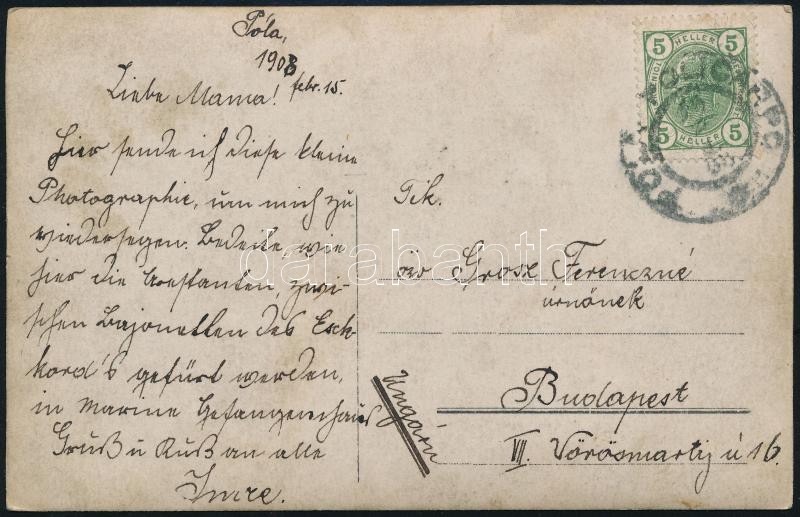 Póla,
1908
febr. 15.
Liebe Mama!
hier sende ich diese kleine
Photographie, um mich zu
wiedersegen. Bedeite, wie
hier die Arestanten, zwi-
schen Bajonetten des Esch-
kord's gefürt werden,
in Marine Gefangenenhaus
Gruß u Kuß an alle
Imre.
5 HELLER 5
5 HELLER 5
POLA
Tik.
özv Grosz Ferenczné
úrnőnek
Budapest
VII. Vörösmarty ú 16.
Ungarn
darabanth